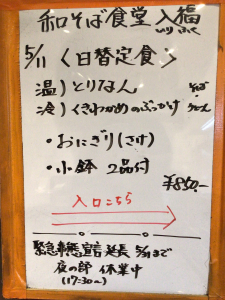 和そば食堂 入福
いり ふく
5/11 〈日替定食〉
温)とりなん そば
冷)くきわかめのぶっかけ うどん
・おにぎり(さけ)
・小鉢 2品付
¥850.-
入口こちら
緊急事態宣言延長 5/31まで
夜の部 休業中
(17:30〜)